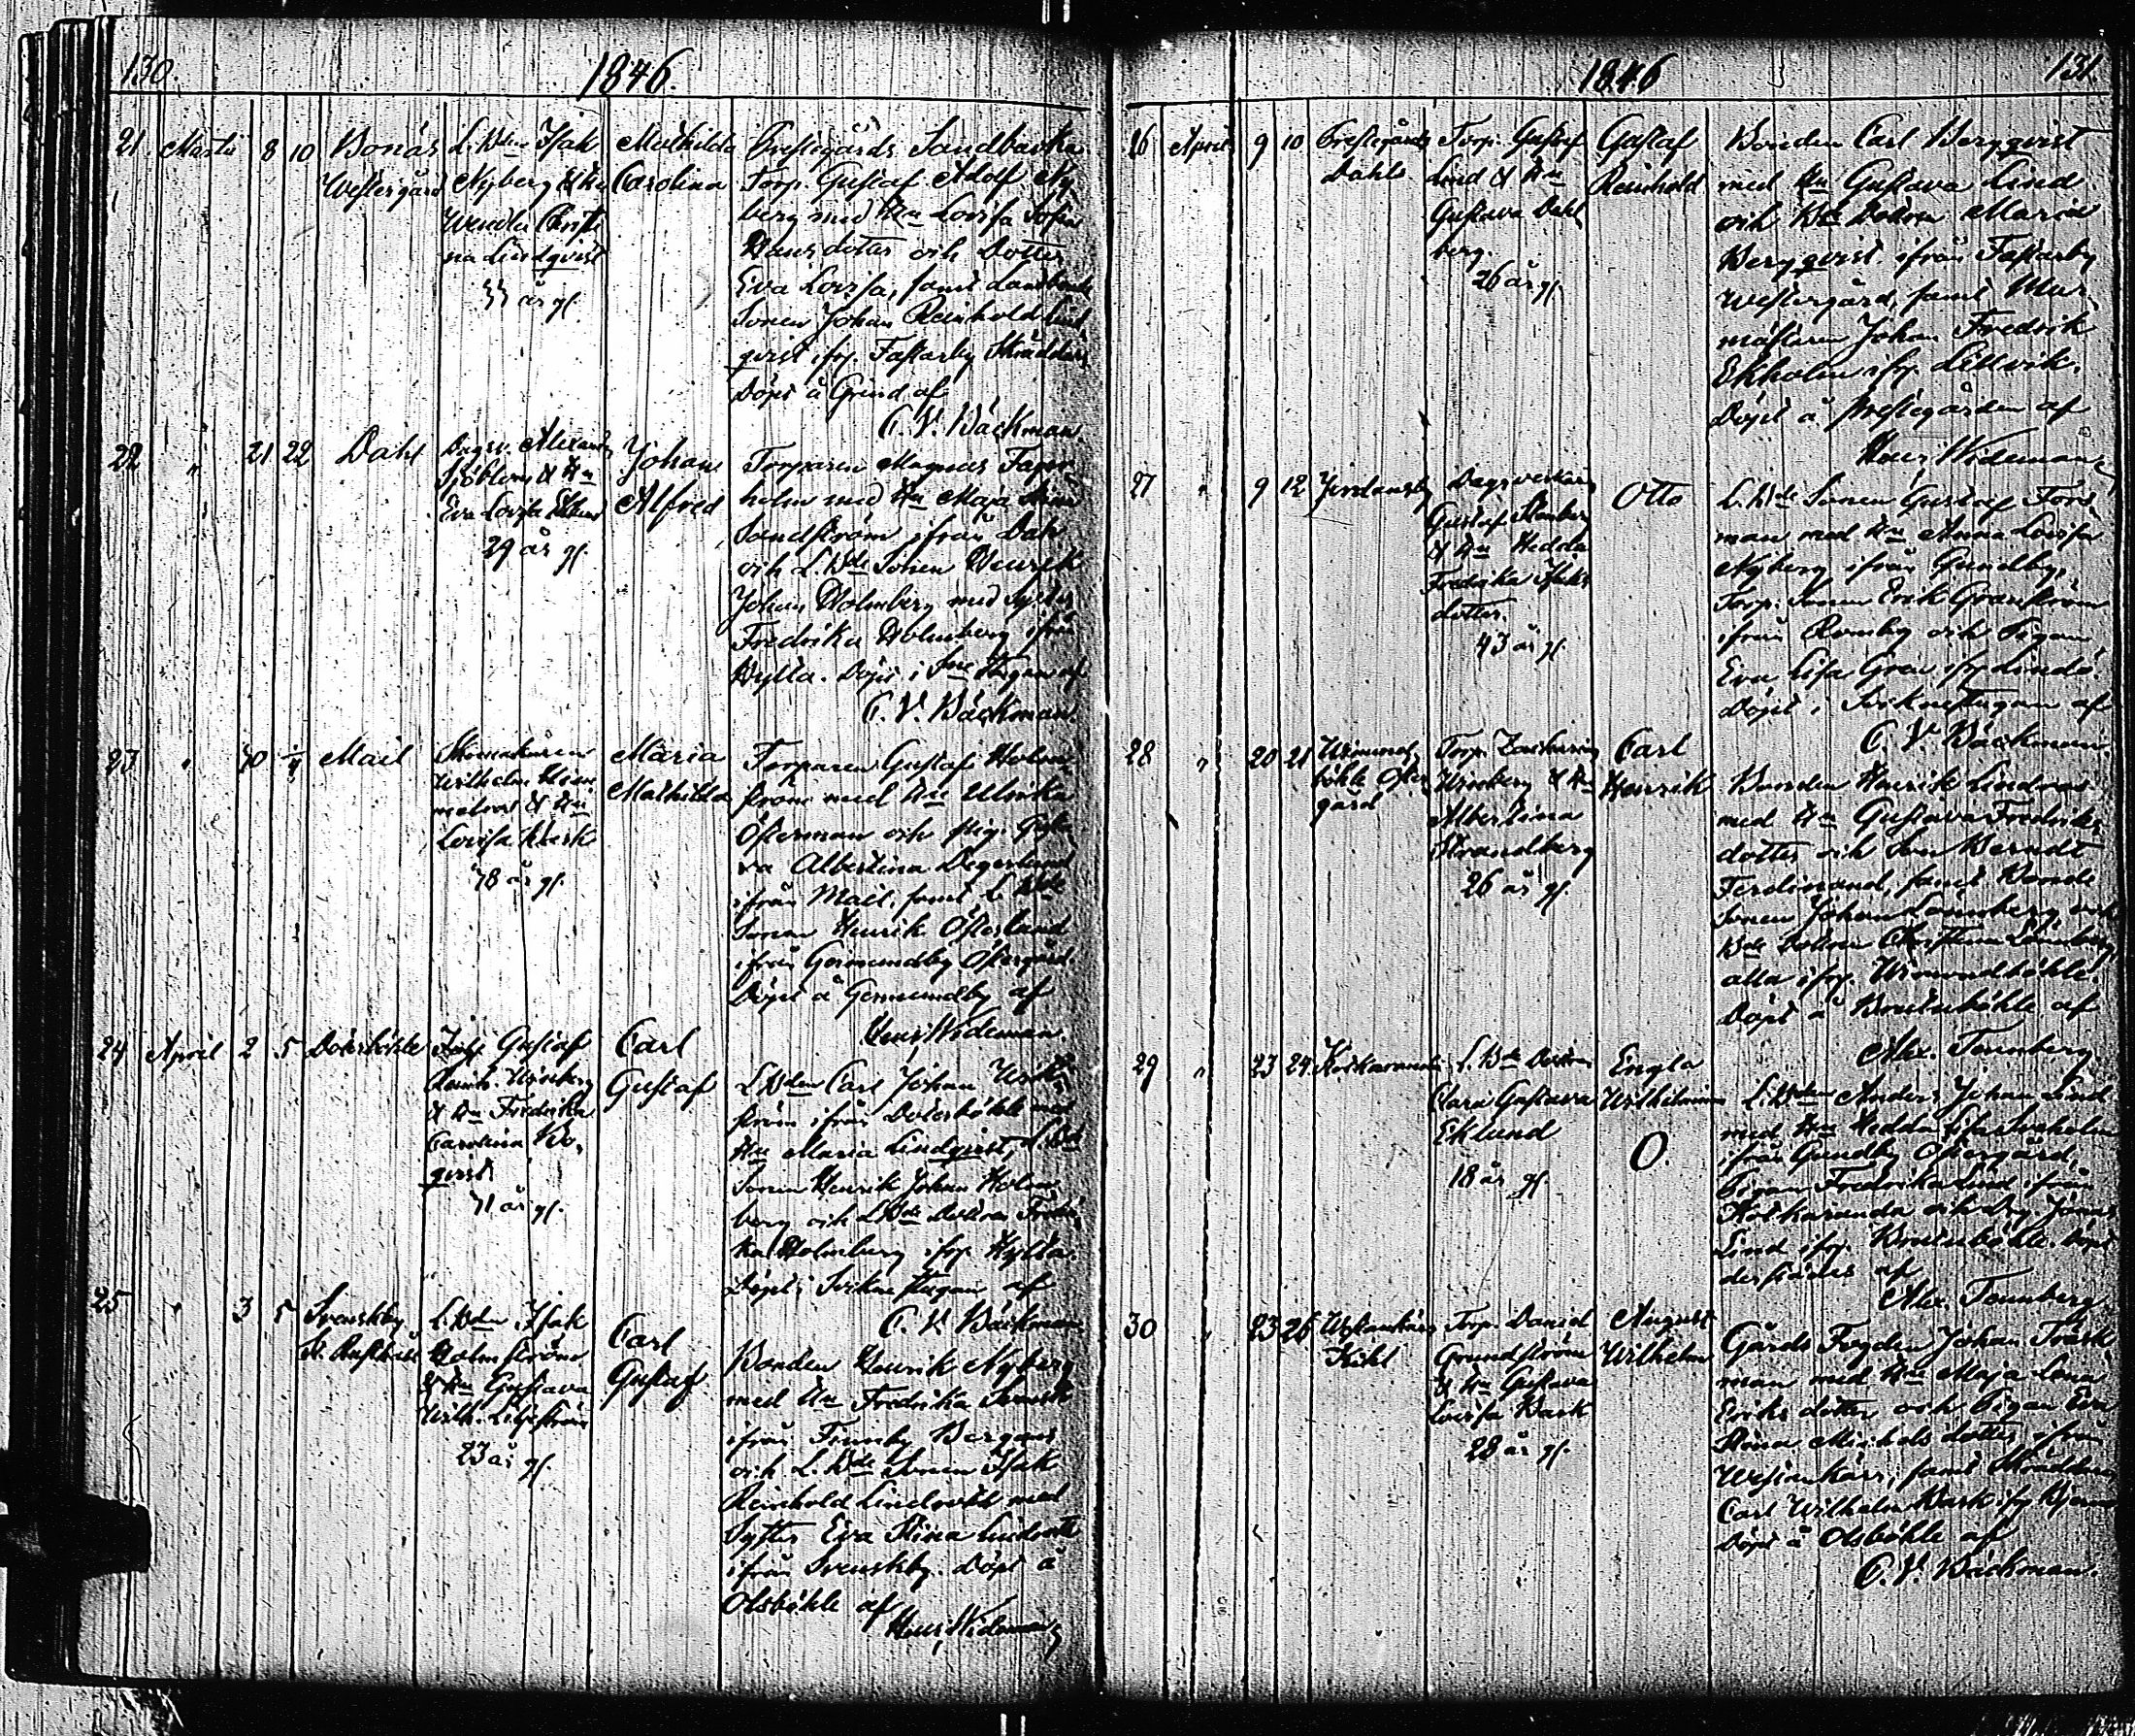 130.
1846.
21. Martii 8 10 Bonäs Westergård
L. Bden Isak
Nyberg & Hu
Wendla Christi
na Lindqvist
33 år gl.
Mathilda
Carolina
Prestegårds Sandbacka
Torp. Gustaf Adolf Ny
berg med Hu Lovisa Sofia
Hansdotter och Dotter
Eva Lovisa, samt Landbonde
Sonen Johan Reinhold Lind
qvist ifr. Fastarby Skräddars
Döpt å Grind af
C. V. Bäckman.
22 " 21 22 Dahl
Dagsv. Alexand.
Sjöblom & Hu
Eva Lovisa
29 år gl.
Johan
Alfred
Torparen Magnus Fager
holm med Hu Maja Stina
Sandström ifrån Dahl
och L. Bde Sonen Henrik
Johan Holmberg med Syster
Fredrika Holmberg ifrån
Hylla. Döpt i Sne Stugan af
C. V. Bäckman.
23 " 30 1/4 Mail
Skomakaren
Wilhelm Him
melroos & Hu
Lovisa Wask
38 år gl.
Maria
Mathilda
Torparen Gustaf Holm
ström med Hu Ulrika
Österman och pig. Gusta
va Albertina Degerlund
ifrån Mail, samt L. Bde
Sonen Henrik Österlund
ifrån Germundby Östergård
Döpt å Germundby af
Henr. Wideman.
24 April 2 5 Dotersböhle
Gustaf
Reinh. Wiseberg
& Hu Fredrika
Carolina Bo
qvist
31 år gl.
Carl
Gustaf
L. Bden Carl Johan
ström ifrån Dotersböhle med
Hu Maria Lindqvist, L. Bde
Sonen Henrik Johan Holm
berg och L. Bde Dottren Fredri
ka Holmberg ifr. Hylla.
Döpt i Sockne Stugan af
C. V. Bäckman
25 " 3 5 Svenskby
St. Rusthåll
L. Bden Isak
Holmström
& Hu Gustava
Wilh. Liljeström
23 år gl.
Carl
Gustaf
Bonden Henrik Nyberg
med Hu Fredrika
ifrån Finnby Bergans
och L. Bde Sonen Isak
Reinhold Lindroth med
Syster Eva Stina Lindroth
ifrån Svenskby. Döpt å
Olsböhle af
Henr. Wideman
1846
131
26 April 9 10 Prestegårds
Dahls
Torp. Gustaf
Lind & Hu
Gustava Dahl
berg.
26 år gl.
Gustaf
Reinhold
Bonden Carl Bergqvist
med Hu Gustava Lind
och Bde Dottren Maria
Bergqvist ifrån Fastarby
Westergård, samt Mur
mästaren Johan Fredrik
Ekholm ifr. Lillvik.
Döpt å Prestegården af
Henr. Wideman
27 " 9 12 Jordansby
Dagsverkar
Gustaf Stenberg
& Hu Hedda
Fredrika Isaks
dotter.
43 år gl.
Otto
L. Bde Sonen Gustaf Fors
man med Hu Anna Lovisa
Nyberg ifrån Gundby,
Torp. Sonen Erik Granström
ifrån Romby och Pigan
Eva Lisa Gren ifr. Lindö.
Döpt i Socknestugan af
C. V. Bäckman
28 " 20 21 Wimond
böhle Öster
gård
Torp. Zacharias
Wimberg & Hu
Albertina
Strandberg
26 år gl.
Carl
Henrik
Bonden Henrik Lindroos
med Hu Gustava Fredriks
dotter och Son Berndt
Ferdinand, samt Bonde
Sonen Johan Lönnberg, och
Bde Dottren Christina Lönnberg,
alla ifr. Wimondböhle.
Döpt å Bruinböhle af
Alex. Tennberg
29 " 23 24 Koskaranda
L. Bde Dottren
Clara Gustava
Eklund
18 år gl.
Engla
Wilhelmina
O.
L. Bden Anders Johan Lind
med Hu Hedda Lisa
ifrån Gundby Östergård,
Pigan Fredrika Lind ifrån
Koskaranda och Drg. Jonas
Lind ifr. Bruinböhle. Döpt
derstädes af
Alex. Tennberg
30 " 23 26 Westankärr
Kihl
Torp. Daniel
Grundström
& Hu Gustava
Lovisa Bask
28 år gl.
August
Wilhelm
Gårds Fogden Johan Träsk
man med Hu Maja Lena
Eriksdotter och Pigan Eva
Stina Michelsdotter ifrån
Westankärr, samt Skräddaren
Carl Wilhelm Bask ifr. Bjerno
Döpt å Olsböhle af
C. V. Bäckman.